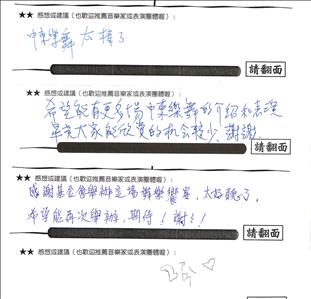 ★★ 感想或建議（也歡迎推薦音樂家或表演團體喔）：
中東樂舞 太棒了
請翻面
★★ 感想或建議（也歡迎推薦音樂家或表演團體喔）：
希望能有更多場中東樂舞的介紹和表演
畢竟大家能欣賞的机会較少，謝謝
請翻面
★★ 感想或建議（也歡迎推薦音樂家或表演團體喔）：
感謝基金會舉辦這場舞樂饗宴，太好聽了，
希望能再次舉辦，期待！謝謝！
請翻面
★★ 感想或建議（也歡迎推薦音樂家或表演團體喔）：